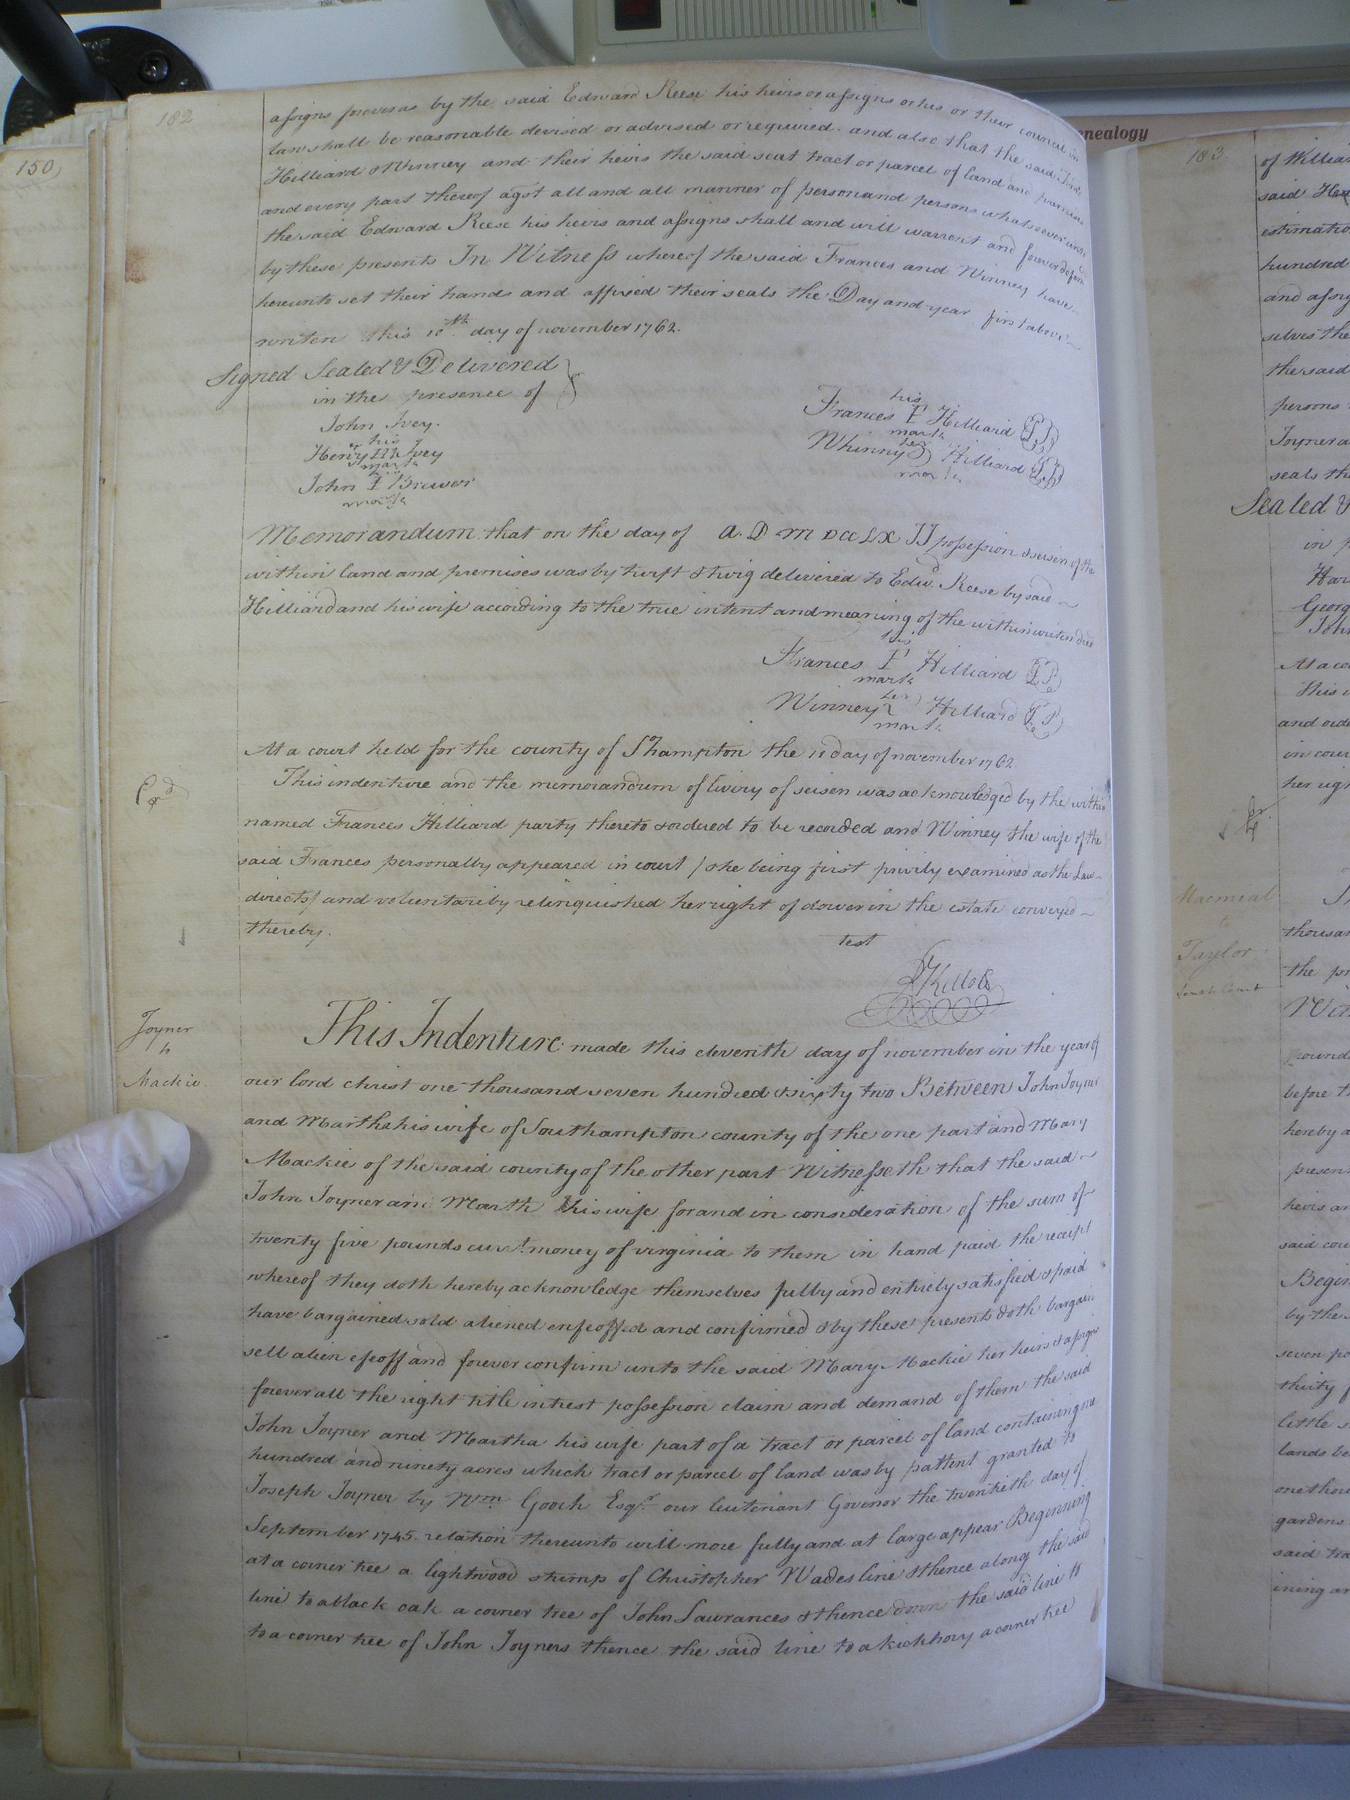 182
assigns provided as by the said Edward Reese his heirs or assigns or his or their council in
law shall be reasonable devised or advised or required. and also that the said
Hilliard & Winney and their heirs the said seat tract or parcel of land and premises
and every part thereof agst all and all manner of person and persons whatsoever unto
the said Edward Reese his heirs and assigns shall and will warrent and forever defend
by these presents In Witness whereof the said Frances and Winney have
hereunto set their hands and affixed their seals the Day and year first above
writen this 10th day of november 1762.
Signed Sealed & Delivered
in the presence of
John Ivey.
his
Henry H Ivey
mark
his
John I Brewer
mark
his
Frances F Hilliard
mark
her
Whinney Hilliard
mark
Memorandum that on the day of A. D MDCCLXII possession & seisen of the
within land and premises was by turft & twig delivered to Edwd. Reese by said
Hilliard and his wife according to the true intent and meaning of the within writen deed
his
Frances F Hilliard
mark
her
Winney Hilliard
mark
At a court held for the county of Shampton the 11 day of november 1762
This indenture and the memorandum of livery of seisen was acknowledged by the within
named Frances Hilliard party thereto & ordered to be recorded and Winney the wife of the
said Frances personally appeared in court (she being first privily examined as the Law
directs) and voluntarily relinquished her right of dower in the estate conveyed
thereby.
test
Joyner
to
Mackie
This Indenture made this eleventh day of november in the year of
our lord christ one thousand seven hundred & sixty two Between John Joyner
and Martha his wife of Southampton county of the one part and Mary
Mackie of the said county of the other part Witnesseth that the said
John Joyner and Marth his wife for and in consideration of the sum of
twenty five pounds curt money of virginia to them in hand paid the receipt
whereof they doth hereby acknowledge themselves fully and entirely satisfied & paid
have bargained sold aliened enfeoffed and confirmed & by these presents doth bargain
sell alien efeoff and forever confirm unto the said Mary Mackie her heirs & assigns
forever all the right title intrest possession claim and demand of them the said
John Joyner and Martha his wife part of a tract or parcel of land containing one
hundred and ninety acres which tract or parcel of land was by pattent granted to
Joseph Joyner by Wm Gooch Esqr our leutenant Govenor the twentieth day of
September 1745. relation thereunto will more fully and at large appear Beginning
at a corner tree a lightwood stump of Christopher Wades line & thence along the said
line to a black oak a corner tree of John Lawrances & thence down the said line to
to a corner tree of John Joyners thence the said line to a kickhory a corner tree
150,
enealogy
183
of Willia
said
estimatio
hundred
and assig
selves the
the said
persons
Joyner a
seals th
Sealed &
in p
Har
Georg
John
At a co
This i
and orde
in cour
her righ
Macmial
to
Taylor
thousan
the pr
before t
hereby a
presen
heirs an
said cou
Begin
by the
seven po
thirty
little
lands be
one thou
gardens
said tra
ining an